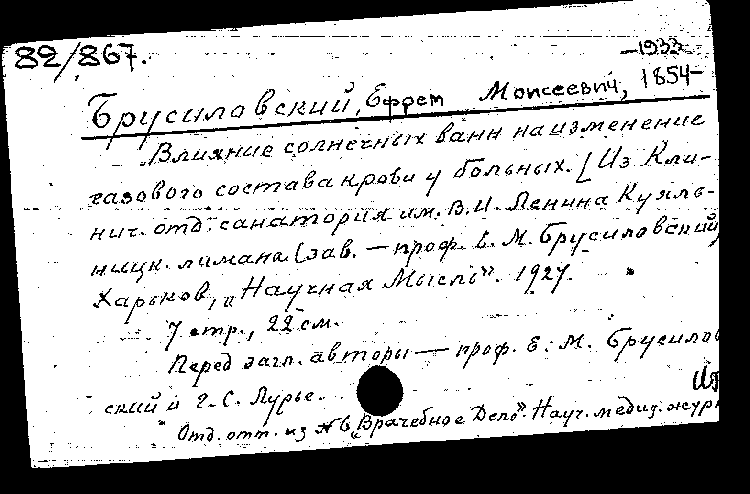 82/867.
-1933
Брусиловский, Ефрем Моисеевич, 1854-
Влияние солнечных ванн на изменение
газового состава крови у больных. [Из Кли-
нич. отд. санатория им. В.И. Ленина Куяль-
ницк. лимана (зав. — проф. Е. М. Брусиловский)
Харьков, „Научная Мысль". 1927.
7 стр., 22 см.
Перед загл. авторы — проф. Е. М. Брусилов
ский и Г. С. Лурье.
Отд. отт. из „Врачебное Дело". Науч. медиц. журн